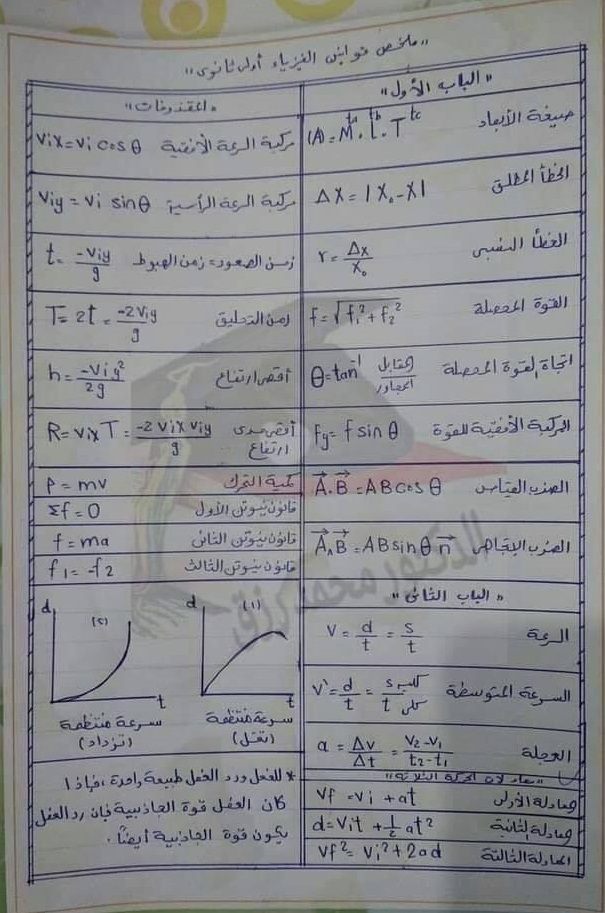 " ملخص قوانين الفيزياء أولى ثانوى "
" الباب الأول "
صيغة الأبعاد (A) = M^±a . L^±b . T^±c
الخطأ المطلق ΔX = |X₀ - X|
الخطأ النسبى r = Δx / X₀
القوة المحصلة f = √(f₁² + f₂²)
اتجاة القوة المحصلة θ = tan⁻¹ المقابل / المجاور
المركبة الأفقية للقوة fy = f sin θ
الضرب القياسى A→ . B→ = AB cos θ
الضرب الإتجاهى A→ ∧ B→ = AB sin θ n→
" الباب الثانى "
السرعة V = d/t = s/t
السرعة المتوسطة V` = d/t = s كلية / t كلى
العجلة a = Δv/Δt = (V₂ - V₁)/(t₂ - t₁)
" معادلات الحركة الثلاثة "
معادلة الأولى Vf = Vi + at
معادلة الثانية d = Vit + ½ at²
المعادلة الثالثة Vf² = Vi² + 2ad
" المقذوفات "
مركبة السرعة الأفقية Vix = Vi cos θ
مركبة السرعة الرأسية Viy = Vi sin θ
زمن الصعود = زمن الهبوط t = -Viy / g
زمن التحليق T = 2t = -2Viy / g
أقصى ارتفاع h = -Viy² / 2g
أقصى مدى R = Vix T = -2 Vix Viy / g
ارتفاع
كمية التحرك P = mv
قانون نيوتن الأول Σf = 0
قانون نيوتن الثانى f = ma
قانون نيوتن الثالث f₁ = -f₂
d (١) t
سرعة منتظمة
(تقل)
d (٢) t
سرعة منتظمة
(تزداد)
* للفعل ورد الفعل طبيعة واحدة، فإذا
كان الفعل قوة الجاذبية فإن رد الفعل
يكون قوة الجاذبية أيضاً.
الدكتور محمد رزق